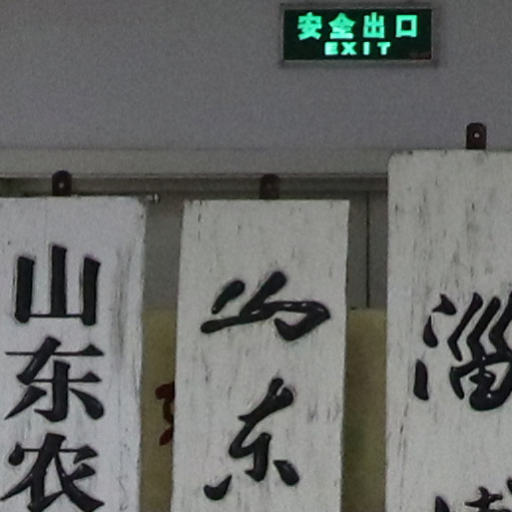 安全出口
EXIT
山东农
山东
淄